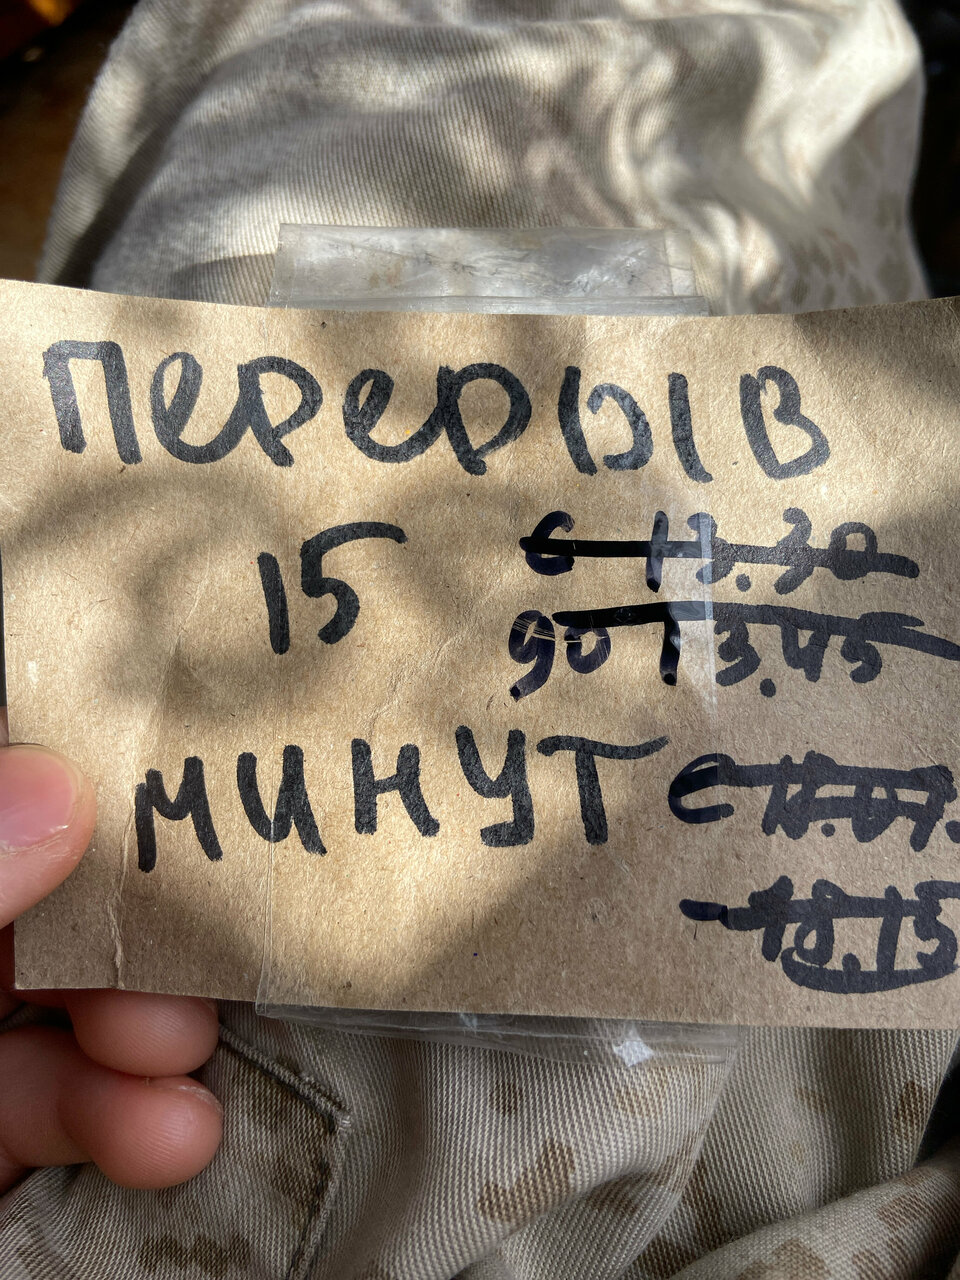 ПЕРЕРЫВ
15
с 13.30
до 13.45
МИНУТ
- 18.15